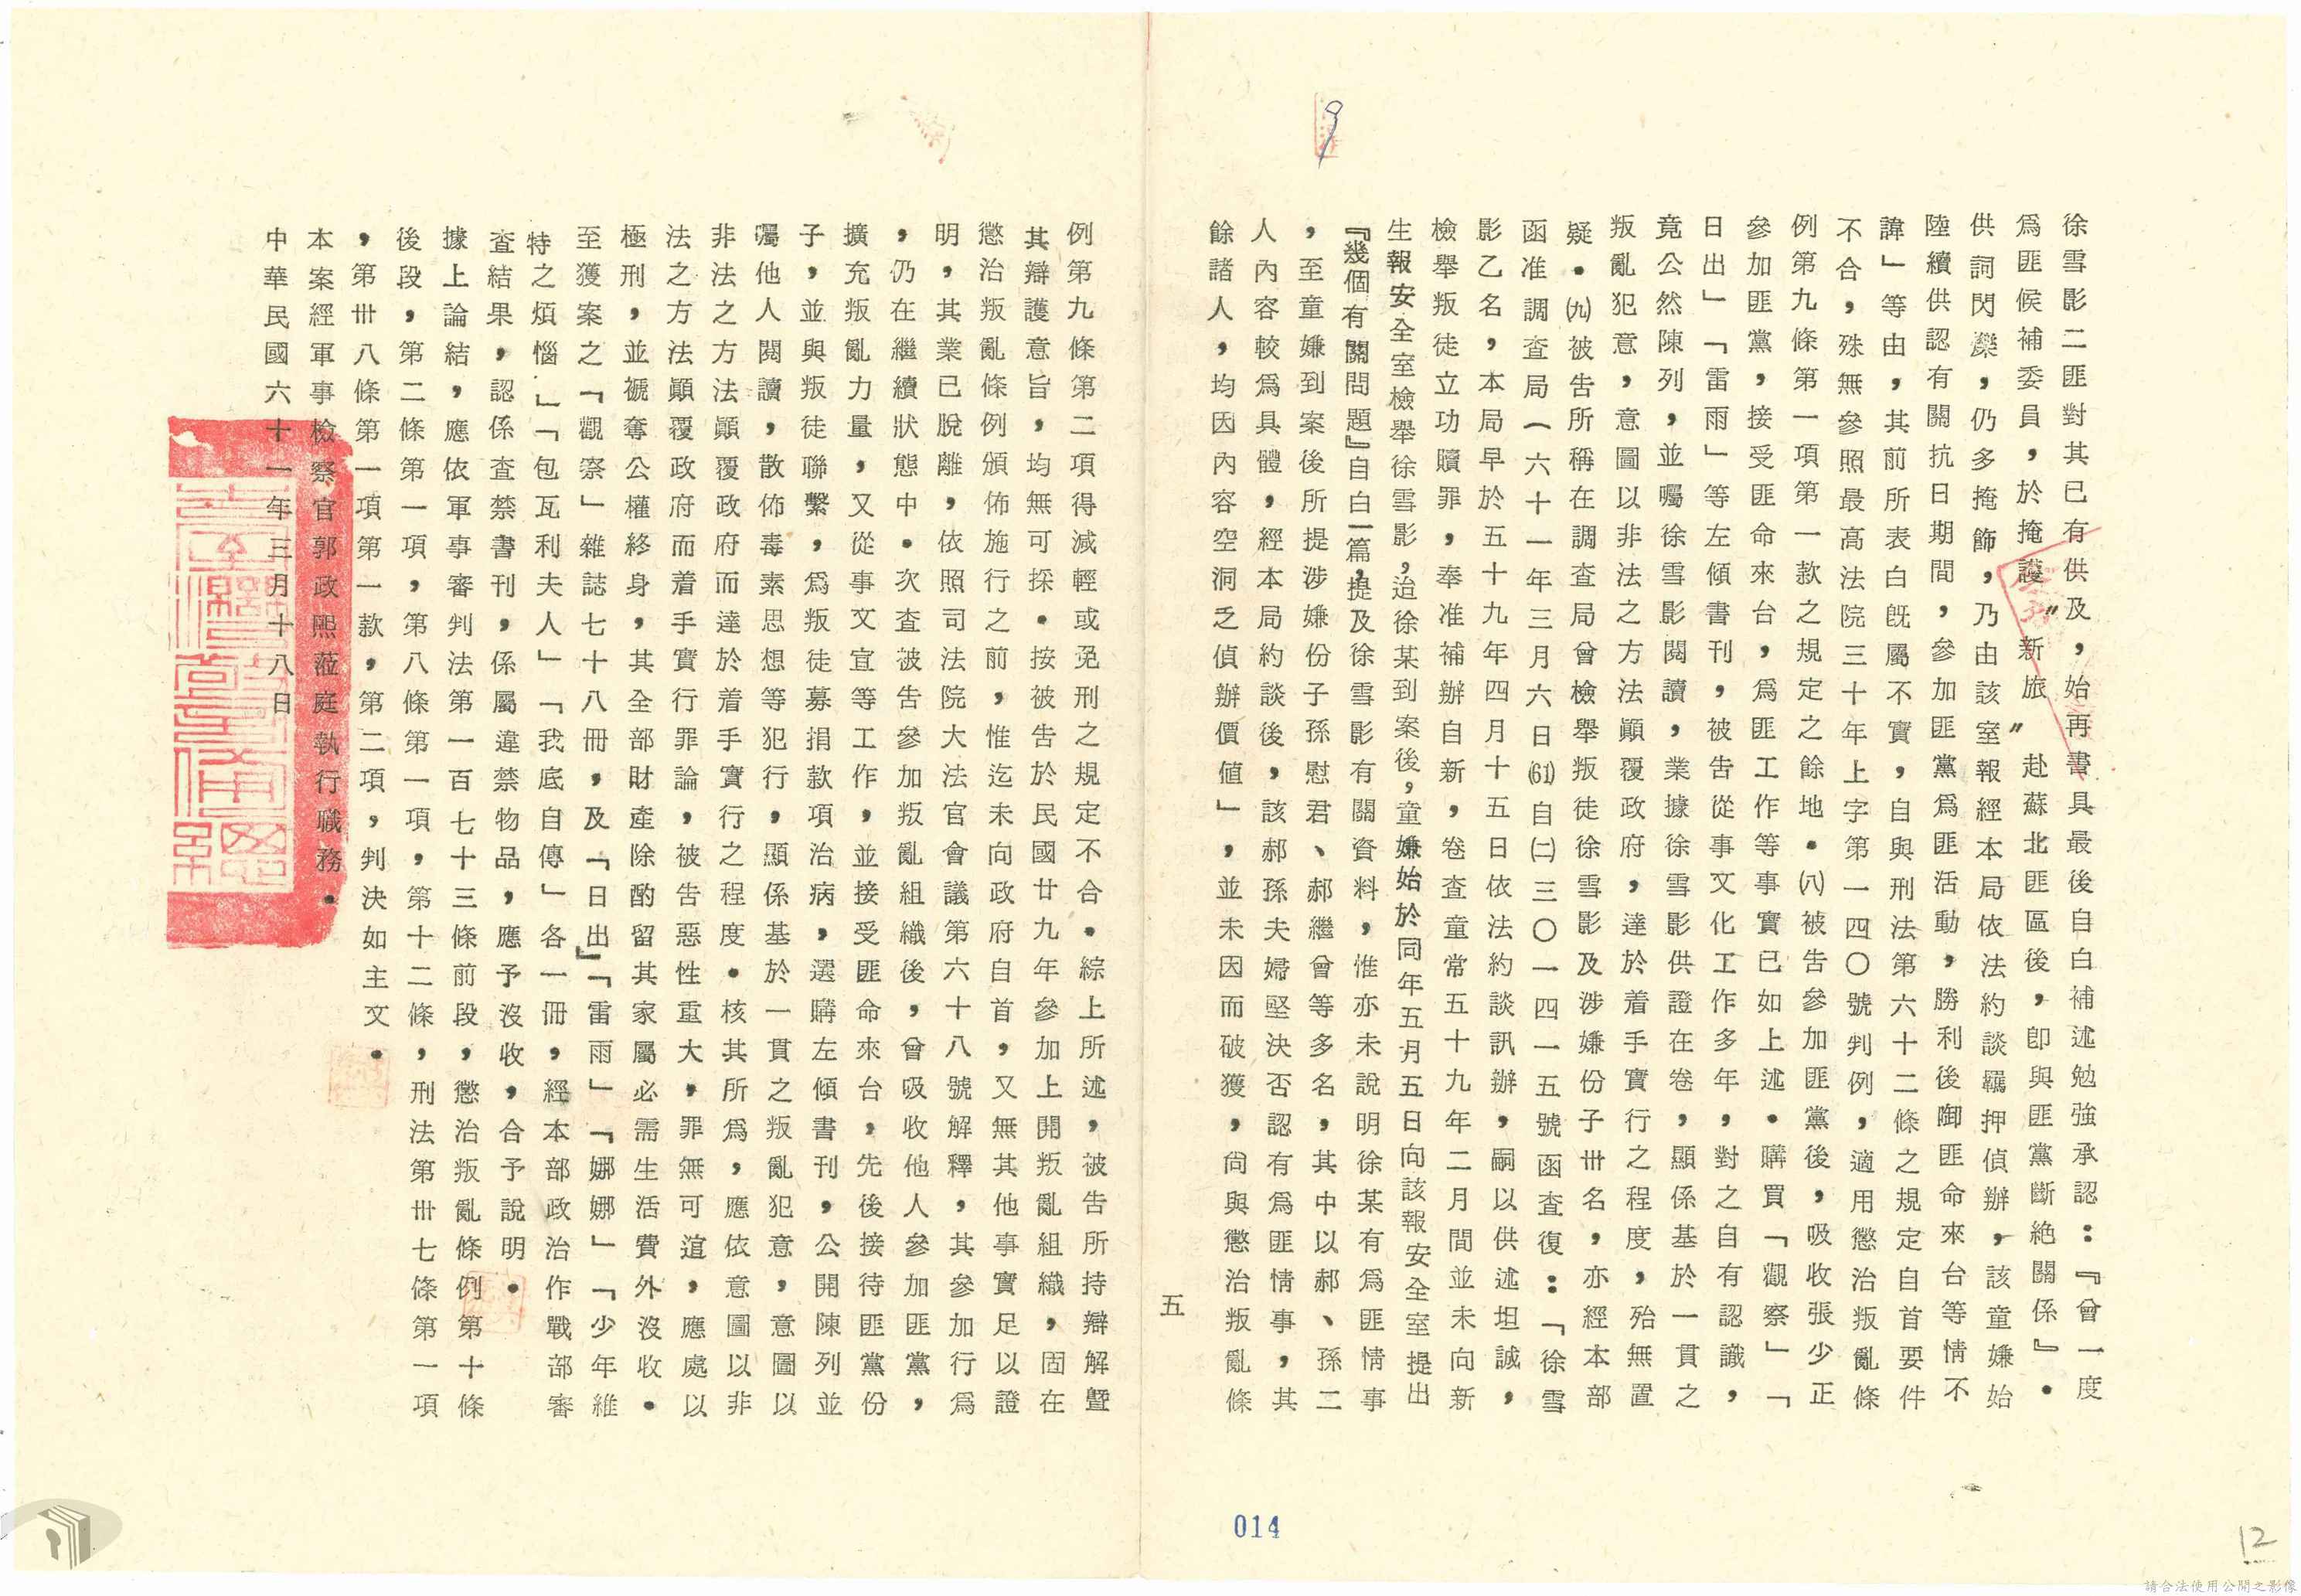 徐雪影二匪對其已有供及，始再書具最後自白補述勉強承認：『曾一度
爲匪候補委員，於掩護〝新旅〞赴蘇北匪區後，卽與匪黨斷絶關係』。
供詞閃爍，仍多掩飾，乃由該室報經本局依法約談羈押偵辦，該童嫌始
陸續供認有關抗日期間，參加匪黨爲匪活動，勝利後啣匪命來台等情不
諱」等由，其前所表白旣屬不實，自與刑法第六十二條之規定自首要件
不合，殊無參照最高法院三十年上字第一四〇號判例，適用懲治叛亂條
例第九條第一項第一款之規定之餘地。㈧被告參加匪黨後，吸收張少正
參加匪黨，接受匪命來台，爲匪工作等事實已如上述。購買「觀察」「
日出」「雷雨」等左傾書刊，被告從事文化工作多年，對之自有認識，
竟公然陳列，並囑徐雪影閱讀，業據徐雪影供證在卷，顯係基於一貫之
叛亂犯意，意圖以非法之方法顚覆政府，達於着手實行之程度，殆無置
疑。㈨被告所稱在調查局曾檢舉叛徒徐雪影及涉嫌份子卅名，亦經本部
函准調查局（六十一年三月六日(61)自㈡三〇一四一五號函查復：「徐雪
影乙名，本局早於五十九年四月十五日依法約談訊辦，嗣以供述坦誠，
檢舉叛徒立功贖罪，奉准補辦自新，卷查童常五十九年二月間並未向新
生報安全室檢舉徐雪影，迨徐某到案後，童嫌始於同年五月五日向該報安全室提出
『幾個有關問題』自白一篇，提及徐雪影有關資料，惟亦未說明徐某有爲匪情事
，至童嫌到案後所提涉嫌份子孫慰君、郝繼曾等多名，其中以郝、孫二
人內容較爲具體，經本局約談後，該郝孫夫婦堅決否認有爲匪情事，其
餘諸人，均因內容空洞乏偵辦價値」，並未因而破獲，尙與懲治叛亂條
五
例第九條第二項得減輕或免刑之規定不合。綜上所述，被告所持辯解暨
其辯護意旨，均無可採。按被告於民國廿九年參加上開叛亂組織，固在
懲治叛亂條例頒佈施行之前，惟迄未向政府自首，又無其他事實足以證
明，其業已脫離，依照司法院大法官會議第六十八號解釋，其參加行爲
，仍在繼續狀態中。次查被告參加叛亂組織後，曾吸收他人參加匪黨，
擴充叛亂力量，又從事文宣等工作，並接受匪命來台，先後接待匪黨份
子，並與叛徒聯繫，爲叛徒募捐款項治病，選購左傾書刊，公開陳列並
囑他人閱讀，散佈毒素思想等犯行，顯係基於一貫之叛亂犯意，意圖以
非法之方法顚覆政府而達於着手實行之程度。核其所爲，應依意圖以非
法之方法顚覆政府而着手實行罪論，被告惡性重大，罪無可逭，應處以
極刑，並褫奪公權終身，其全部財產除酌留其家屬必需生活費外沒收。
至獲案之「觀察」雜誌七十八冊，及「日出」「雷雨」「娜娜」「少年維
特之煩惱」「包瓦利夫人」「我底自傳」各一冊，經本部政治作戰部審
查結果，認係查禁書刊，係屬違禁物品，應予沒收，合予說明。
據上論結，應依軍事審判法第一百七十三條前段，懲治叛亂條例第十條
後段，第二條第一項，第八條第一項，第十二條，刑法第卅七條第一項
，第卅八條第一項第一款，第二項，判決如主文。
本案經軍事檢察官郭政熙蒞庭執行職務。
中華民國六十一年三月十八日
014
12
請合法使用公開之影像